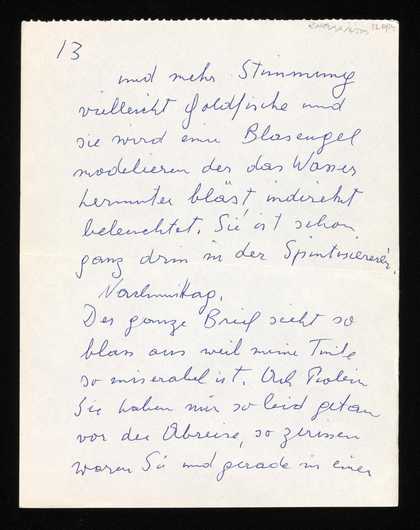 13
und mehr Stimmung
vielleicht Goldfische und
sie wird eine Blasengel
modelieren der das Wasser
herunter bläst indirekt
beleuchtet. Sie ist schon
ganz drin in der Spintisiererei.
Nachmittag.
Der ganze Brief sieht so
blass aus weil meine Tinte
so miserabel ist. Ach
Sie haben mir so leid getan
vor der Abreise, so zerissen
waren Sie und gerade in einer